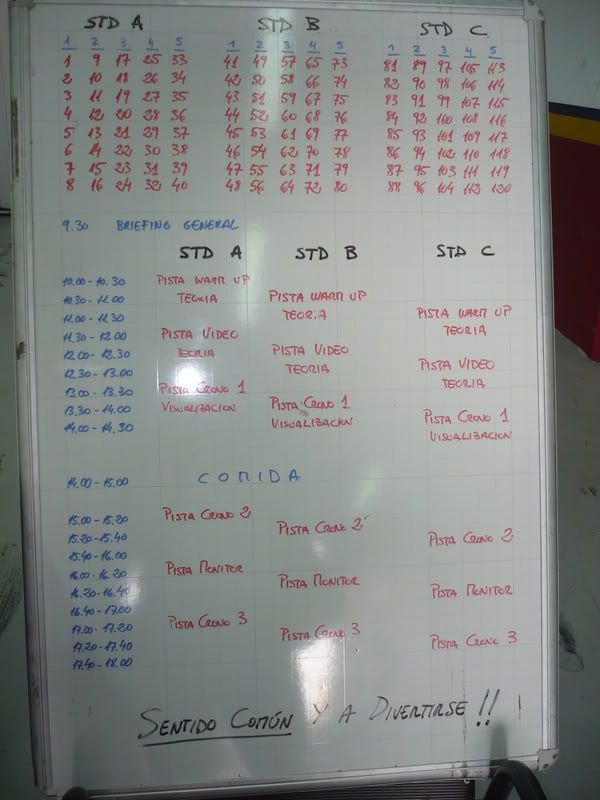 STD A STD B STD C
1 2 3 4 5 1 2 3 4 5 1 2 3 4 5
1 9 17 25 33 41 49 57 65 73 81 89 97 105 113
2 10 18 26 34 42 50 58 66 74 82 90 98 106 114
3 11 19 27 35 43 51 59 67 75 83 91 99 107 115
4 12 20 28 36 44 52 60 68 76 84 92 100 108 116
5 13 21 29 37 45 53 61 69 77 85 93 101 109 117
6 14 22 30 38 46 54 62 70 78 86 94 102 110 118
7 15 23 31 39 47 55 63 71 79 87 95 103 111 119
8 16 24 32 40 48 56 64 72 80 88 96 104 112 120
9.30 BRIEFING GENERAL
STD A STD B STD C
10.00 - 10.30 PISTA WARM UP
10.30 - 11.00 TEORIA PISTA WARM UP
11.00 - 11.30 TEORIA PISTA WARM UP
11.30 - 12.00 PISTA VIDEO TEORIA
12.00 - 12.30 TEORIA PISTA VIDEO
12.30 - 13.00 TEORIA PISTA VIDEO
13.00 - 13.30 PISTA CRONO 1 TEORIA
13.30 - 14.00 VISUALIZACION PISTA CRONO 1
14.00 - 14.30 VISUALIZACION PISTA CRONO 1
VISUALIZACION
14.00 - 15.00 COMIDA
15.00 - 15.20 PISTA CRONO 2
15.20 - 15.40 PISTA CRONO 2
15.40 - 16.00 PISTA CRONO 2
16.00 - 16.20 PISTA MONITOR
16.20 - 16.40 PISTA MONITOR
16.40 - 17.00 PISTA MONITOR
17.00 - 17.20 PISTA CRONO 3
17.20 - 17.40 PISTA CRONO 3
17.40 - 18.00 PISTA CRONO 3
SENTIDO COMÚN Y A DIVERTIRSE !!